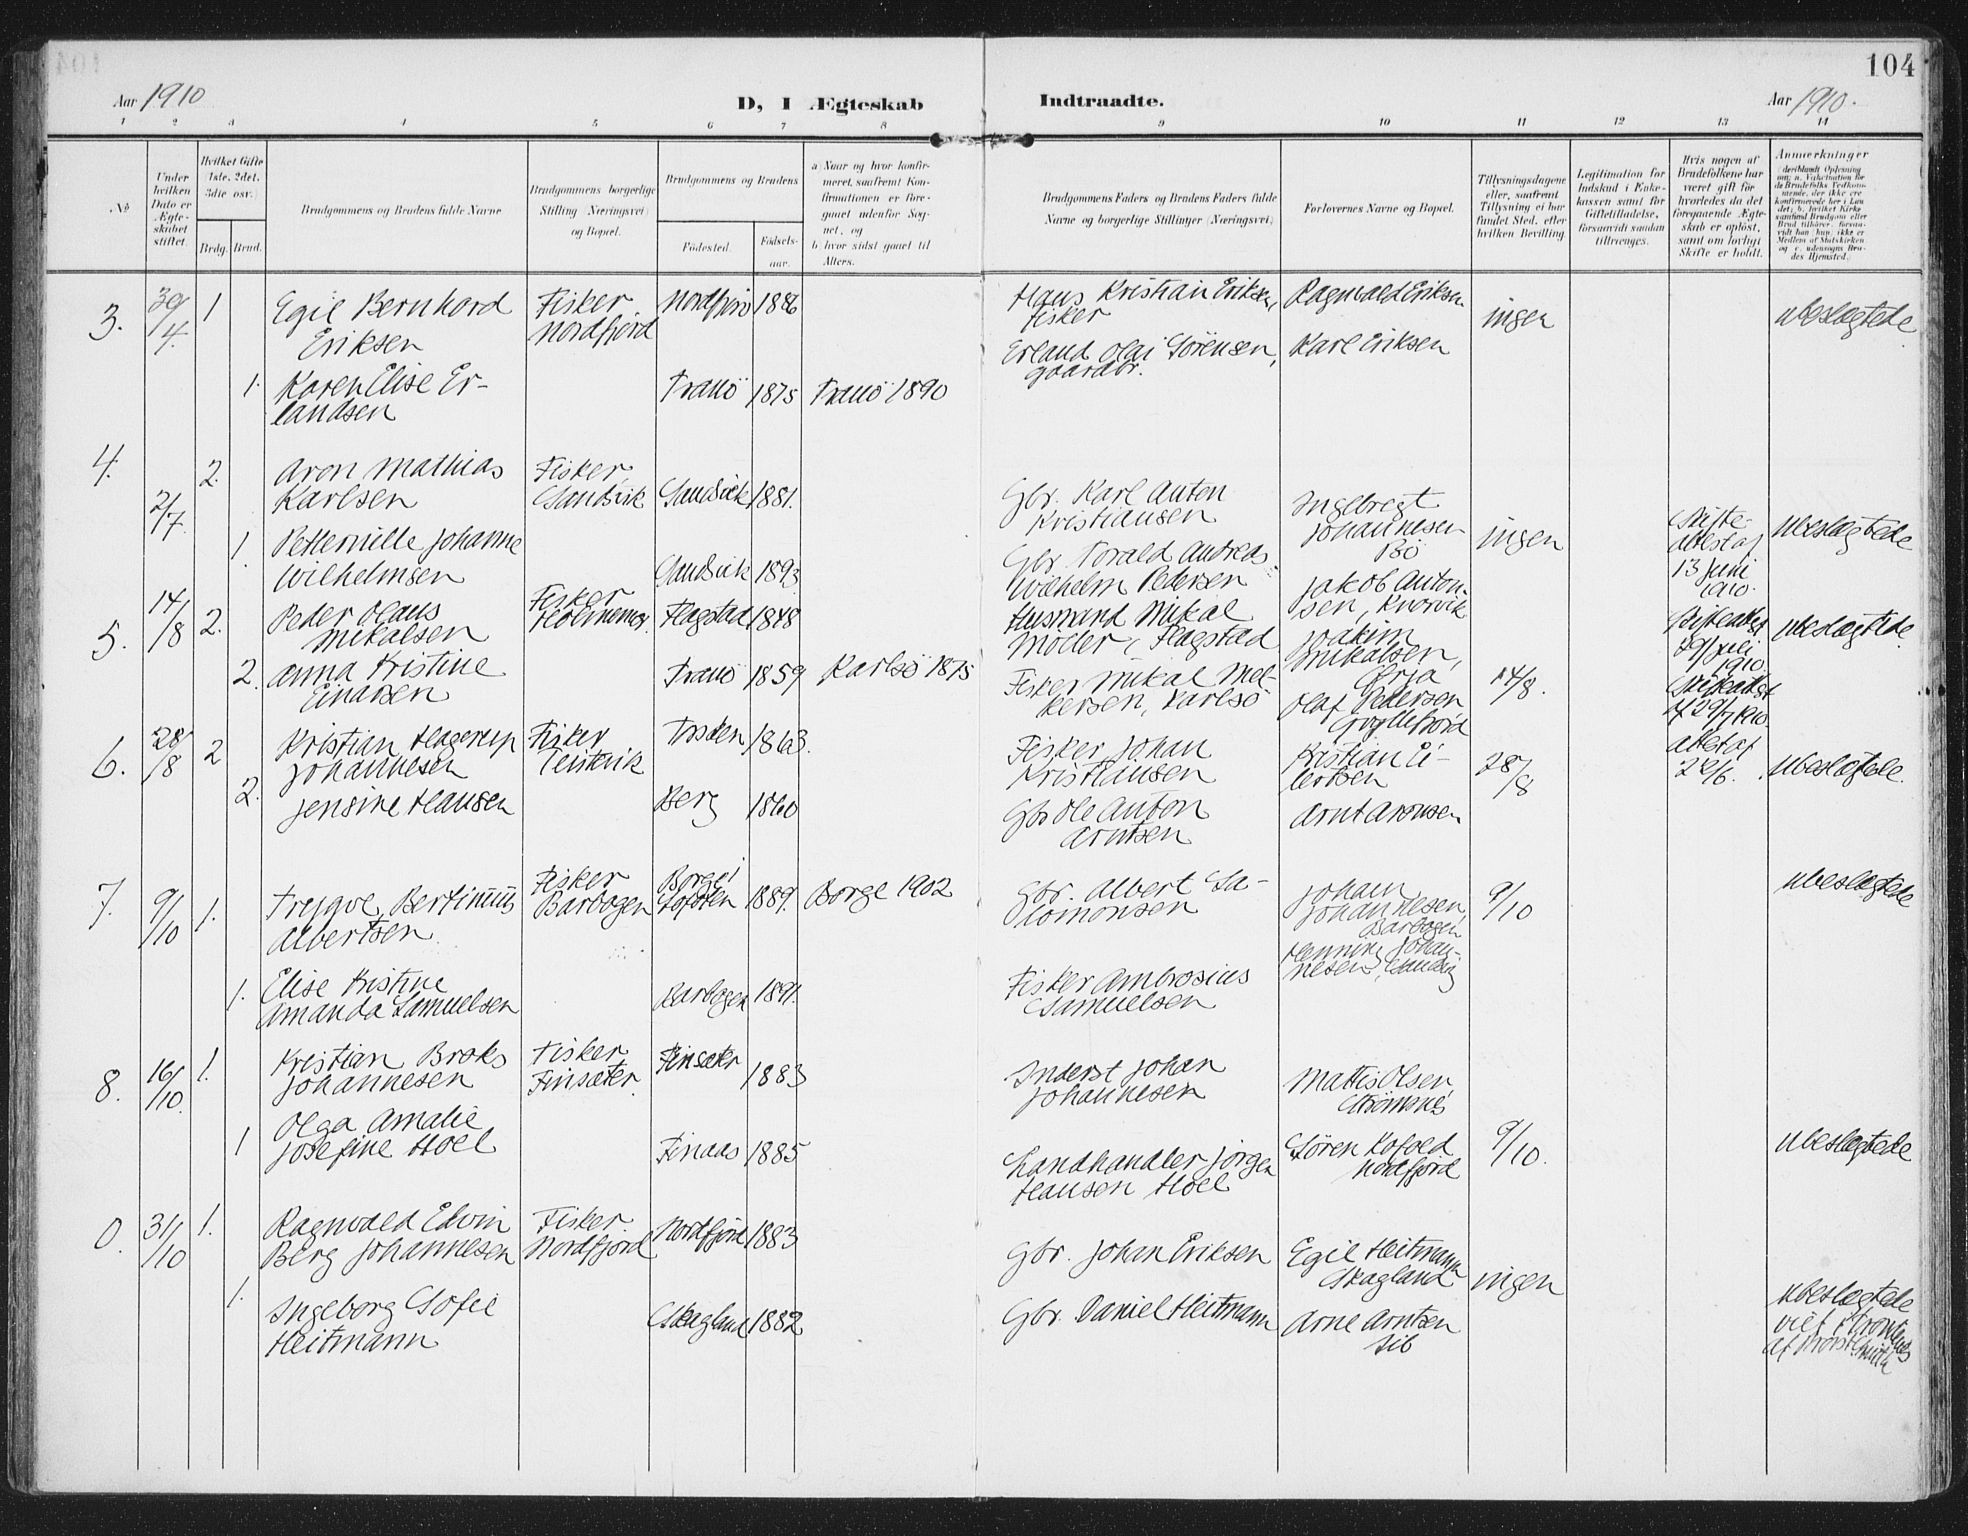 104
Aar 1910
D, I Ægteskab Indtraadte.
Aar 1910.
1 2 3 4 5 6 7 8 9 10 11 12 13 14
No
Under hvilken Dato er Ægteskabet stiftet.
Hvilket Gifte (1ste, 2det, 3die osv.)
Brdg. Brud.
Brudgommens og Brudens fulde Navne
Brudgommens borgerlige Stilling (Næringsvei) og Bopæl.
Brudgommens og Brudens
Fødested. Fødselsaar.
a) Naar og hvor konfirmeret, saafremt Konfirmationen er foregaaet udenfor Sognet, og
b) hvor sidst gaaet til Alters.
Brudgommens Faders og Brudens Faders fulde Navne og borgerlige Stillinger (Næringsvei)
Forlovernes Navne og Bopæl.
Tillysningsdagene eller, saafremt Tillysning ei har fundet Sted, efter hvilken Bevilling
Legitimation for Indskud i Enkekassen samt for Giftetilladelse, forsaavidt saadan tiltrænges.
Hvis nogen af Brudefolkene har været gift før hvorledes da det foregaaende Ægteskab er opløst, samt om lovligt Skifte er holdt.
Anmærkninger
3. 30/4 1 Egil Bernhard Eriksen
Fisker Nordfjord
Nordfjord 1886
Hans Kristian Eriksen, fisker
Ragnvald Eriksen
ingen
ubeslægtede
1. Karen Elise Erlandsen
Tranö 1875 Tranö 1890
Erland Olai Sörensen, gaardbr.
Karl Eriksen
4. 2/7 2. Aron Mathias Karlsen
Fisker, Sandvik
Sandvik 1881.
Gbr. Karl Anton Kristiansen
Ingebregt Johannesen Bö
ingen
Skifteattest af 13 Juni 1910.
ubeslægtede
1. Petternille Johanne Wilhelmsen
Sandvik 1893
Gbr. Torald Andreas Wilhelm Pedersen
Jakob Antonsen, Kvarvik
5. 14/8 2. Peder Olaus Mikalsen
Fisker
Flagstad 1848
Husmand Mikal Moder, Flagstad
Joakim Mikalsen,
Skifteattest 29/Juli 1910.
ubeslægtede
2. Anna Kristine Einarsen
Tranö 1859 Karlsö 1875
Fisker Mikal Melkersen, Karlsö
Olaf Pedersen Gryllefjord
14/8.
Skifteattest af 29/7 1910.
6. 28/8 2 Kristian Hagerup Johannesen
Fisker Teistevik
Torsken 1863.
Fisker Johan Kristiansen
Kristian Eilertsen
28/8
Attest af 22/6.
ubeslægtede.
2. Jensine Hansen
Berg 1860
Gbr Ole Anton Arntsen
Arnt Aronsen
7. 9/10 1. Trygve Bertinius Albertsen
Fisker Barbogen
Borge i Lofoten 1889. Borge 1902
Gbr. Albert Salomonsen
Johan Johannesen, Barbogen
9/10
ubeslægtede
1. Elise Kristine Amanda Samuelsen
Barbogen 1891.
Fisker Ambrosius Samuelsen
Henning Johannesen,
8. 16/10. 1. Kristian Broks Johannesen
Fisker Finsæter
Finsæter 1883
Inderst Johan Johannesen
Mattis Olsen, Strömsnes
1 Olga Amalie Josefine Hoel
Finaas 1885
Landhandler Jörgen Hansen Hoel
Sören Kofoed Nordfjord
9/10.
ubeslægtede
31/10 1. Ragnvald Edvin Berg Johannesen
Fisker Nordfjord
Nordfjord 1883
Gbr. Johan Eriksen
Egil Heitmann Skagland
ingen
1. Ingeborg Sofie Heitmann
Skagland 1882
Gbr. Daniel Heitmann
Arne Arntsen
ubeslægtede
viet i
af Provst Smith